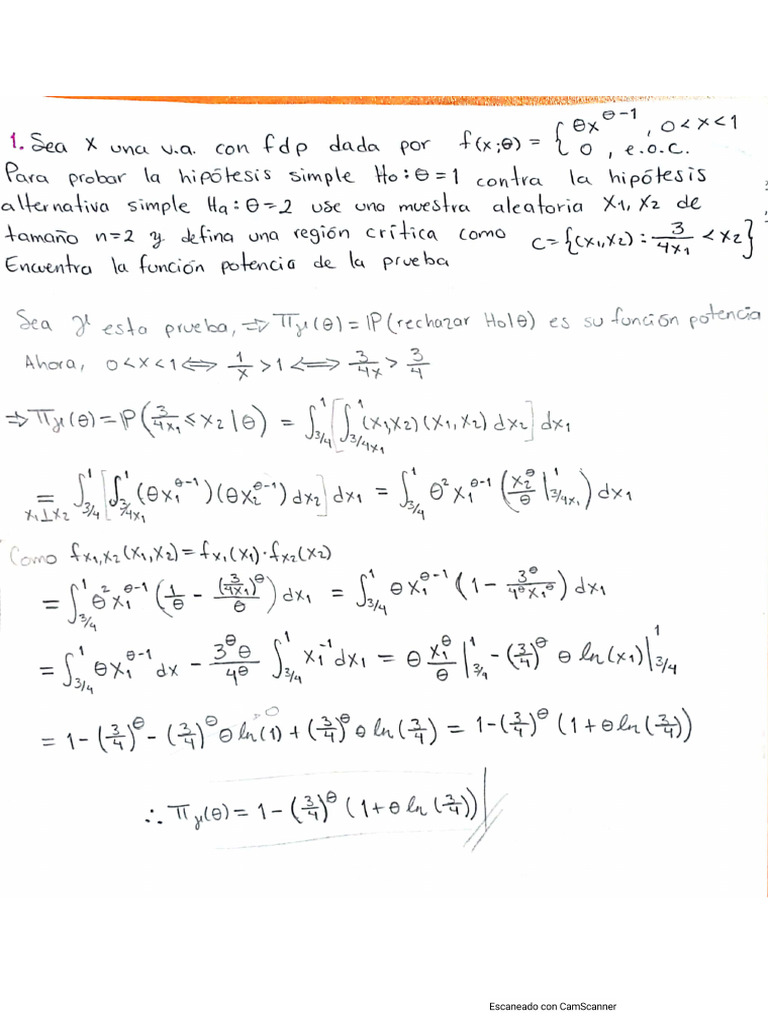 1. Sea X una v.a. con fdp dada por f(x;θ) = { θx^{θ-1}, 0<x<1
0, e.o.c.
Para probar la hipótesis simple Ho: θ=1 contra la hipótesis
alternativa simple Ha: θ=2 use uno muestra aleatoria X1, X2 de
tamaño n=2 y defina una región crítica como C={(x1,x2): 3/4x1 < x2}
Encuentra la función potencia de la prueba
Sea γ esta prueba, ⇒ Πγ(θ) = IP(rechazar Ho|θ) es su función potencia
Ahora, 0<x<1 ⟺ 1/x >1 ⟺ 3/4x > 3/4
⇒ Πγ(θ) = IP(3/4x1 ≤ x2 | θ) = ∫_{3/4}^{1} [∫_{3/4x1}^{1} (x1,x2)(x1,x2) dx2] dx1
=_{x1⊥x2} ∫_{3/4}^{1} [∫_{3/4x1}^{1} (θx1^{θ-1})(θx2^{θ-1}) dx2] dx1 = ∫_{3/4}^{1} θ² x1^{θ-1} (x2^θ/θ |_{3/4x1}^{1}) dx1
Como f_{x1,x2}(x1,x2) = f_{x1}(x1)·f_{x2}(x2)
= ∫_{3/4}^{1} θ² x1^{θ-1} (1/θ - (3/4x1)^θ/θ) dx1 = ∫_{3/4}^{1} θx1^{θ-1} (1 - 3^θ/4^θx1^θ) dx1
= ∫_{3/4}^{1} θx1^{θ-1} dx - 3^θθ/4^θ ∫_{3/4}^{1} x1^{-1} dx1 = θ x1^θ/θ |_{3/4}^{1} - (3/4)^θ θ ln(x1) |_{3/4}^{1}
= 1-(3/4)^θ - (3/4)^θ θ ln(1) + (3/4)^θ θ ln(3/4) = 1-(3/4)^θ (1+θ ln(3/4))
∴ Πγ(θ) = 1-(3/4)^θ (1+θ ln(3/4))
Escaneado con CamScanner